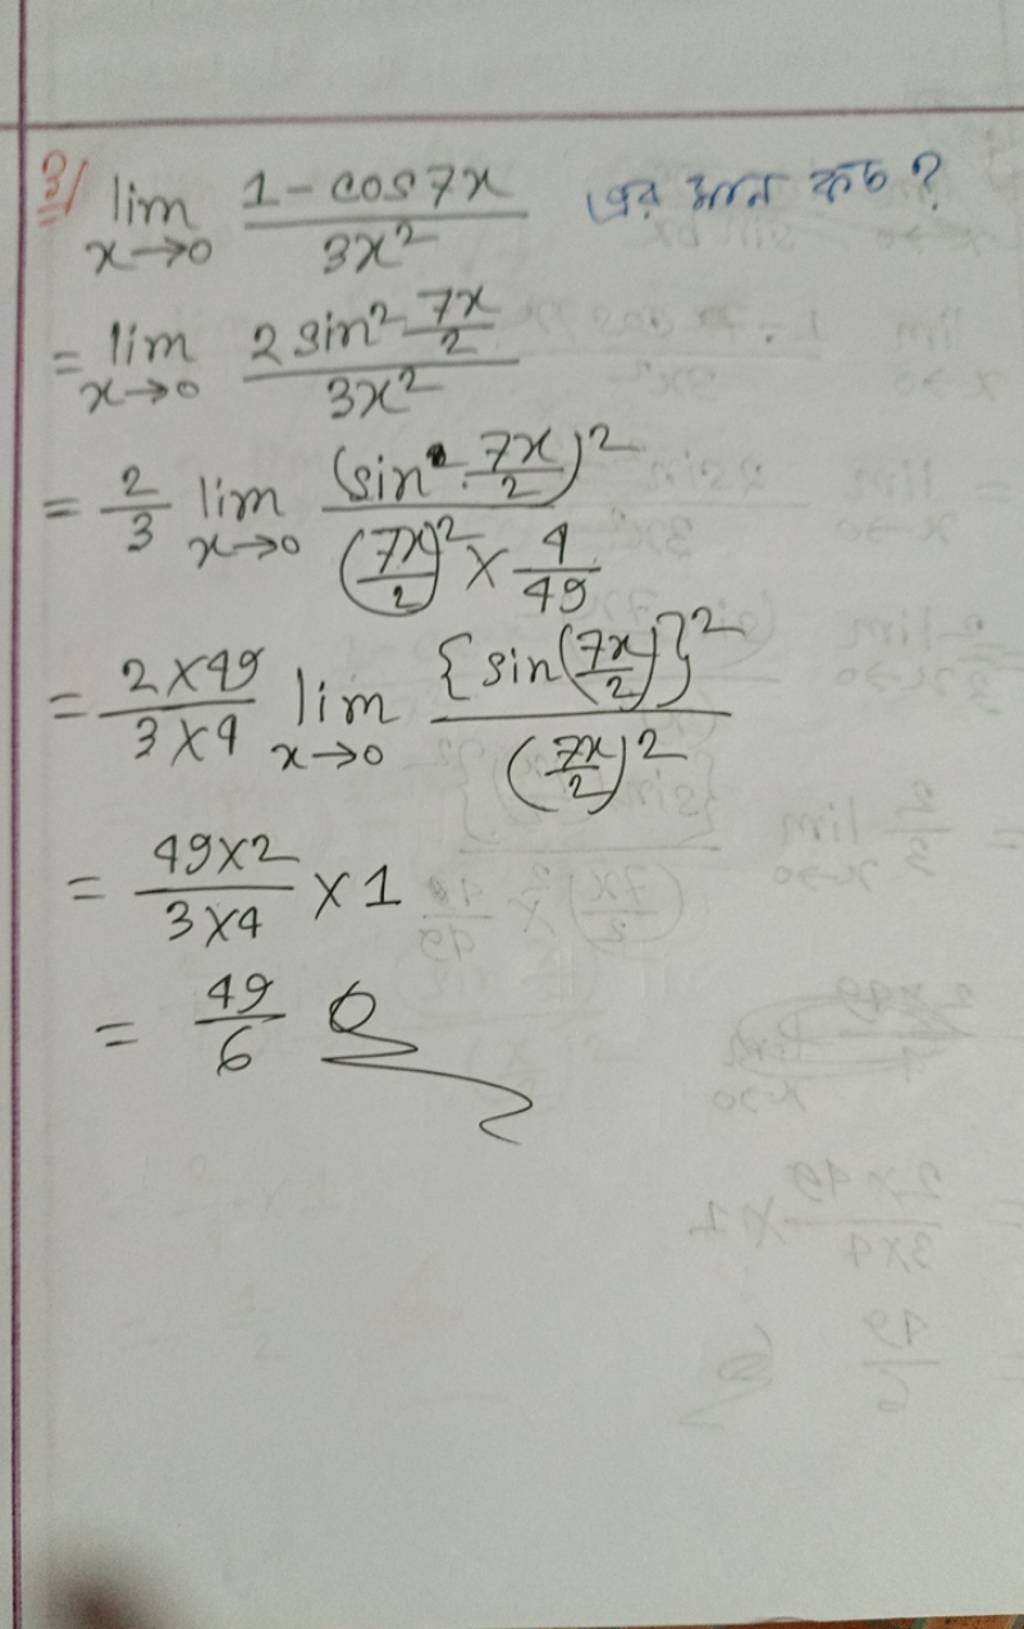 3/ lim x→0 (1 - cos7x)/(3x²) এর মান কত?
= lim x→0 (2 sin² 7x/2)/(3x²)
= 2/3 lim x→0 (sin 7x/2)²/((7x/2)² × 4/49)
= (2×49)/(3×4) lim x→0 {sin(7x/2)}²/(7x/2)²
= (49×2)/(3×4) × 1
= 49/6